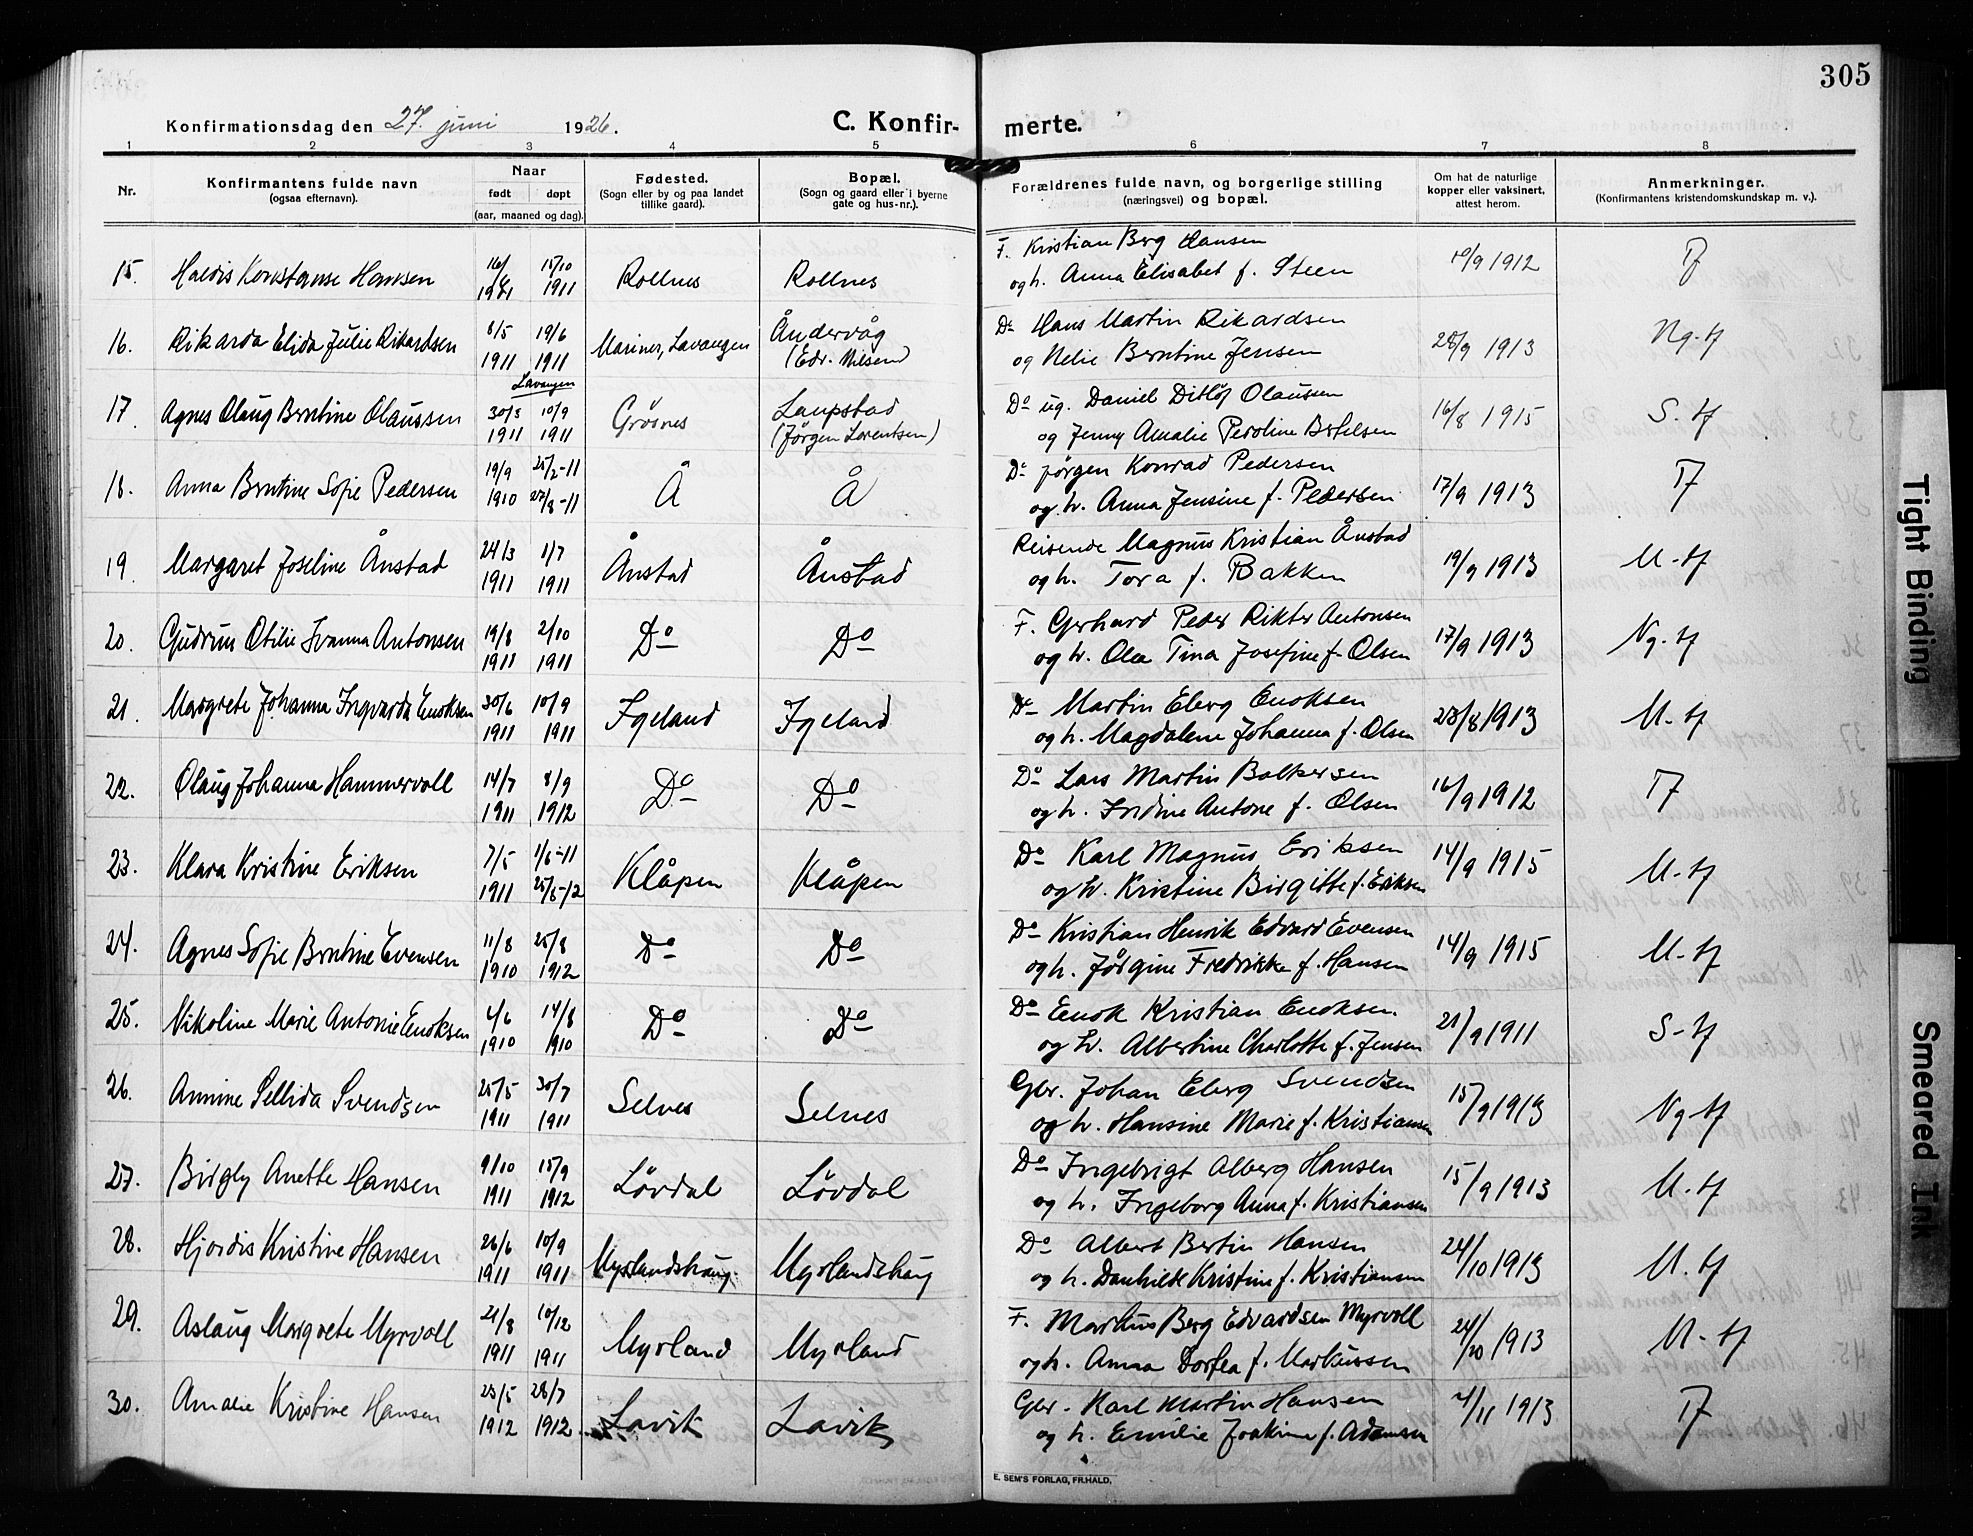 305
Konfirmationsdag den 27. juni 1926.
C. Konfir- merte.
1 2 3 4 5 6 7 8
Nr.
Konfirmantens fulde navn
(ogsaa efternavn).
Naar
født døpt
(aar, maaned og dag).
Fødested.
(Sogn eller by og paa landet
tillike gaard).
Bopæl.
(Sogn og gaard eller i byerne
gate og hus-nr.).
Forældrenes fulde navn, og borgerlige stilling
(næringsvei) og bopæl.
Om hat de naturlige
kopper eller vaksinert,
attest herom.
Anmerkninger.
(Konfirmantens kristendomskundskap m. v.).
15. Haldis Konstanse Hansen 16/ 15/10 Rollnes Rollnes F. Kristian Berg Hansen 10/9 1912 Tf
1911 1911 og h. Anna Elisabet f. Steen
16. Rikarda Elida Julie Rikardsen 8/5 19/6 Marines, Lavangen Åndervåg Do Hans Martin Rikardsen 28/9 1913 Ng. tf
1911 1911 (Edv. Nilsen) og Nelie Berntine Jensen
Lavangen
17. Agnes Olaug Berntine Olaussen 30/3 10/9 Grøsnes Laupstad Do ug. Daniel Ditlöf Olaussen 16/8 1915 S. tf
1911 1911 (Jörgen Lorentsen) og Jenny Amalie Peroline Bertelsen
18. Anna Berntine Sofie Pedersen 19/9 25/2-11 Å Å Do Jörgen Konrad Pedersen 17/9 1913 Tf
1910 27/8-11 og h. Anna Jensine f. Pedersen
19. Margaret Joseline Ånstad 24/3 1/7 Ånstad Ånstad Reisende Magnus Kristian Ånstad 19/9 1913 M. tf
1911 1911 og h. Tora f. Bakken
20. Gudrun Otilie Ivanna Antonsen 19/8 2/10 Do Do F. Gerhard Peder Rikter Antonsen 17/9 1913 Ng. tf
1911 1911 og h. Ole Tina Josefine f. Olsen
21. Margrete Johanna Ingvarda Enoksen 30/6 10/9 Igeland Igeland Do Martin Eberg Enoksen 23/8 1913 M. tf
1911 1911 og h. Magdalene Johanna f. Olsen
22. Olaug Johanna Hammervoll 14/7 8/9 Do Do Do Lars Martin Bolhersen 16/9 1912 Tf
1911 1912 og h. Fridine Antone f. Olsen
23. Klara Kristine Eriksen 7/5 1/6-11 Klåpen Klåpen Do Karl Magnus Eriksen 14/9 1915 M. tf
1911 25/8-12 og h. Kristine Birgitte f. Eriksen
24. Agnes Sofie Berntine Evensen 11/8 25/8 Do Do Do Kristian Henrik Edvard Evensen 14/9 1915 M. tf
1910 1912 og h. Jörgine Fredrikke f. Hansen
25. Nikoline Marie Antonie Enoksen 4/6 14/8 Do Do Do Enok Kristian Enoksen. 21/9 1911 S. tf
1910 1910 og h. Albertine Charlotte f. Jensen
26. Annine Sellida Svendsen 25/5 30/7 Selnes Selnes Gbr. Johan Eberg Svendsen 15/9 1913 Ng. tf
1911 1911 og h. Hansine Marie f. Kristiansen
27. Birgly Anette Hansen 9/10 15/9 Lövdal Lövdal Do Ingebrigt Alberg Hansen 15/9 1913 M. tf
1911 1912 og h. Ingeborg Anna f. Kristiansen
28. Hjordis Kristine Hansen 26/6 10/9 Myrlandshaug. Myrlandshaug Do Albert Bertin Hansen 24/10 1913 M. tf
1911 1911 og h. Danhilde Kristine f. Kristiansen
29. Aslaug Margrete Myrvoll 21/8 10/12 Myrland Myrland F. Markus Berg Edvardsen Myrvoll 24/10 1913 M. tf
1911 1911 og h. Anna Dorfea f. Markussen
30. Amalie Kristine Hansen 25/5 28/7 Lavik Lavik Gbr. Karl Martin Hansen 4/11 1913 Tf
1912 1912 og h. Emilie Joakime f. Adamsen
E. SEM'S FORLAG, FR.HALD.
Tight Binding
Smeared Ink